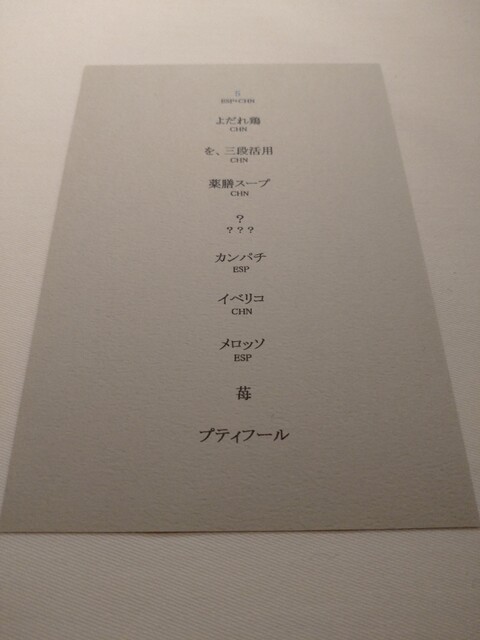 ESP×CHN
よだれ鶏
CHN
を、三段活用
CHN
薬膳スープ
CHN
?
???
カンパチ
ESP
イベリコ
CHN
メロッソ
ESP
苺
プティフール